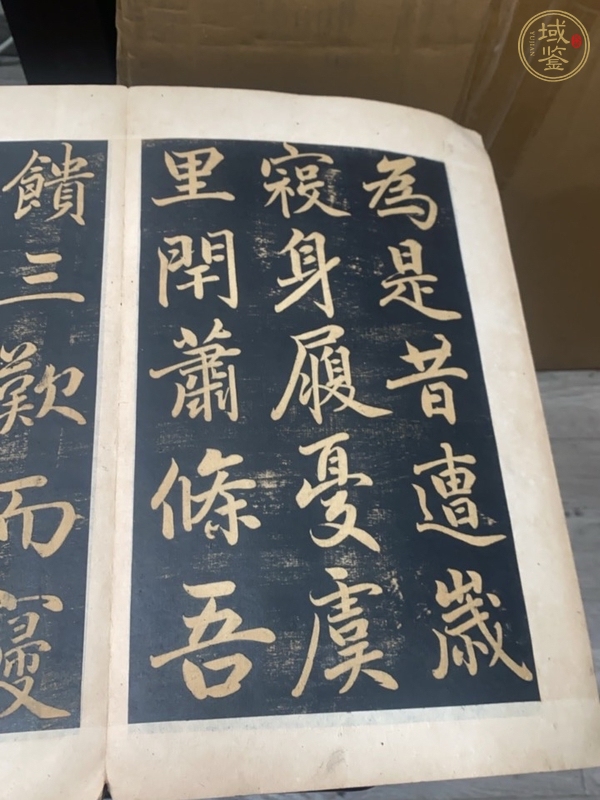 為是昔遭歲
身履憂虞
里閈蕭條吾
饋三歎而
域鉴
YUJIAN